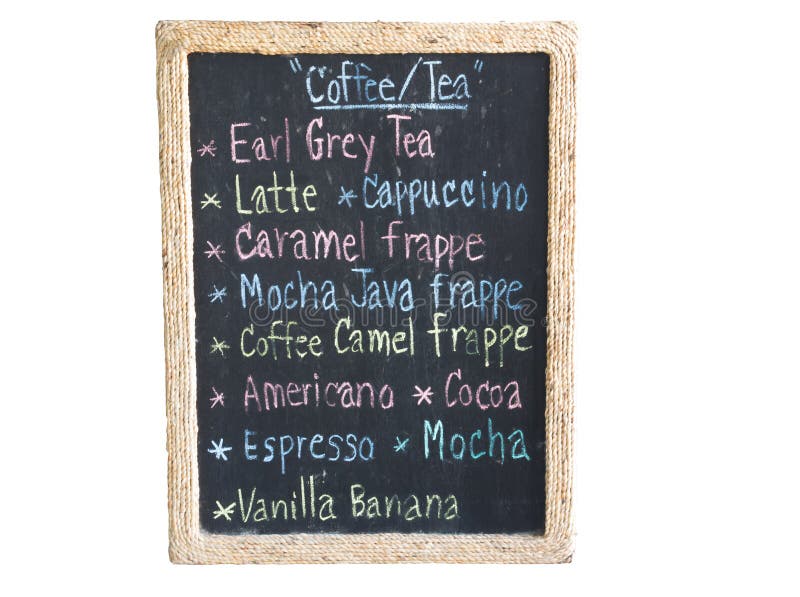 "Coffee/Tea"
* Earl Grey Tea
* Latte * Cappuccino
* Caramel frappe
* Mocha Java frappe
* Coffee Camel frappe
* Americano * Cocoa
* Espresso * Mocha
* Vanilla Banana
dreamstime.com
ID 72034542 © Coffeekai